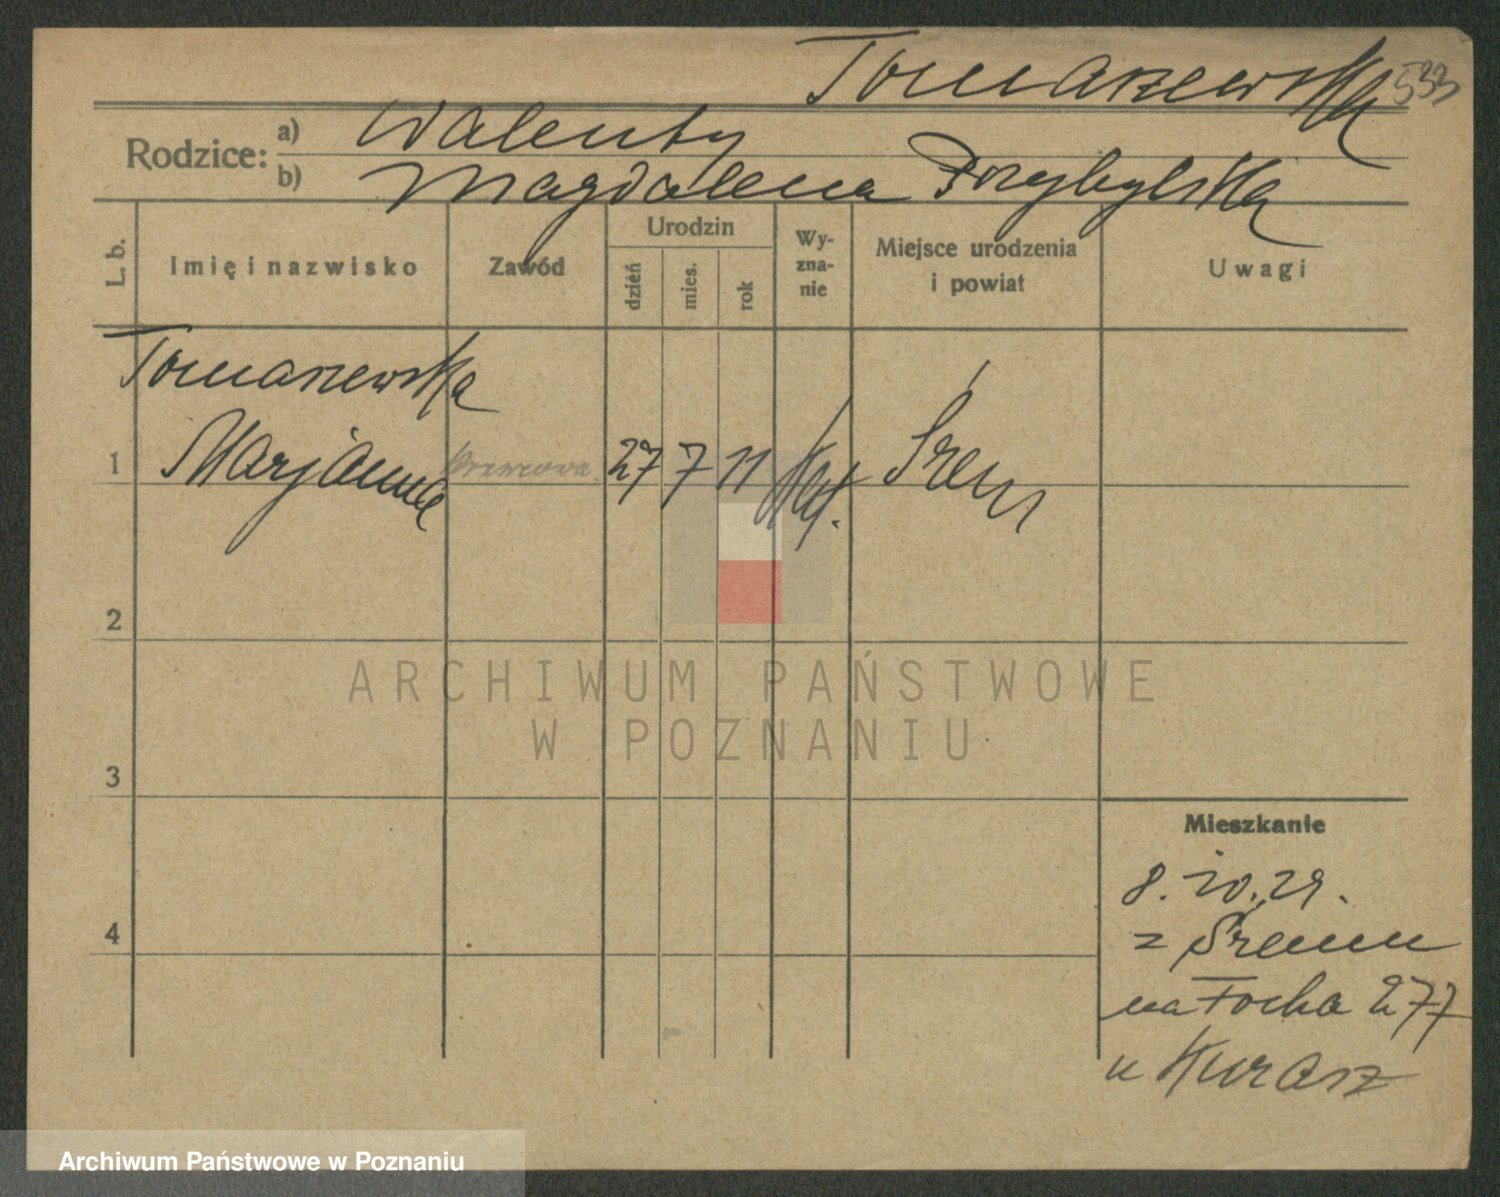 Tomaszewska 533
Rodzice: a) Walenty
b) Magdalena Przybylska
L. b.
Imię i nazwisko
Zawód
Urodzin
dzień
mies.
rok
Wy-
zna-
nie
Miejsce urodzenia
i powiat
Uwagi
Tomaszewska
1 Marjanna 27 7 11 kat. Śrem
2
ARCHIWUM PAŃSTWOWE
W POZNANIU
3
Mieszkanie
8.10.29.
4 z Śremu
na Focha 277
u Kurasz
Archiwum Państwowe w Poznaniu